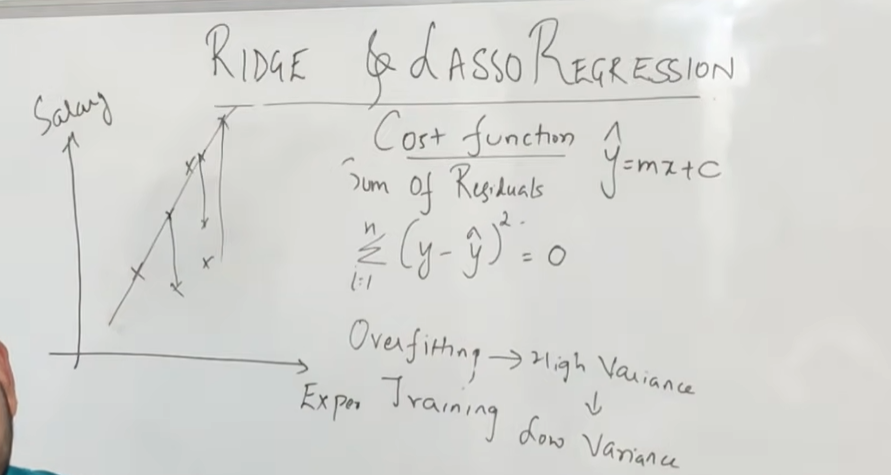 RIDGE & LASSO REGRESSION
Salary
Cost function ŷ=mx+c
Sum of Residuals
n
Σ (y-ŷ)² = 0
i=1
Overfitting → High Variance
↓
Exper Training Low Variance